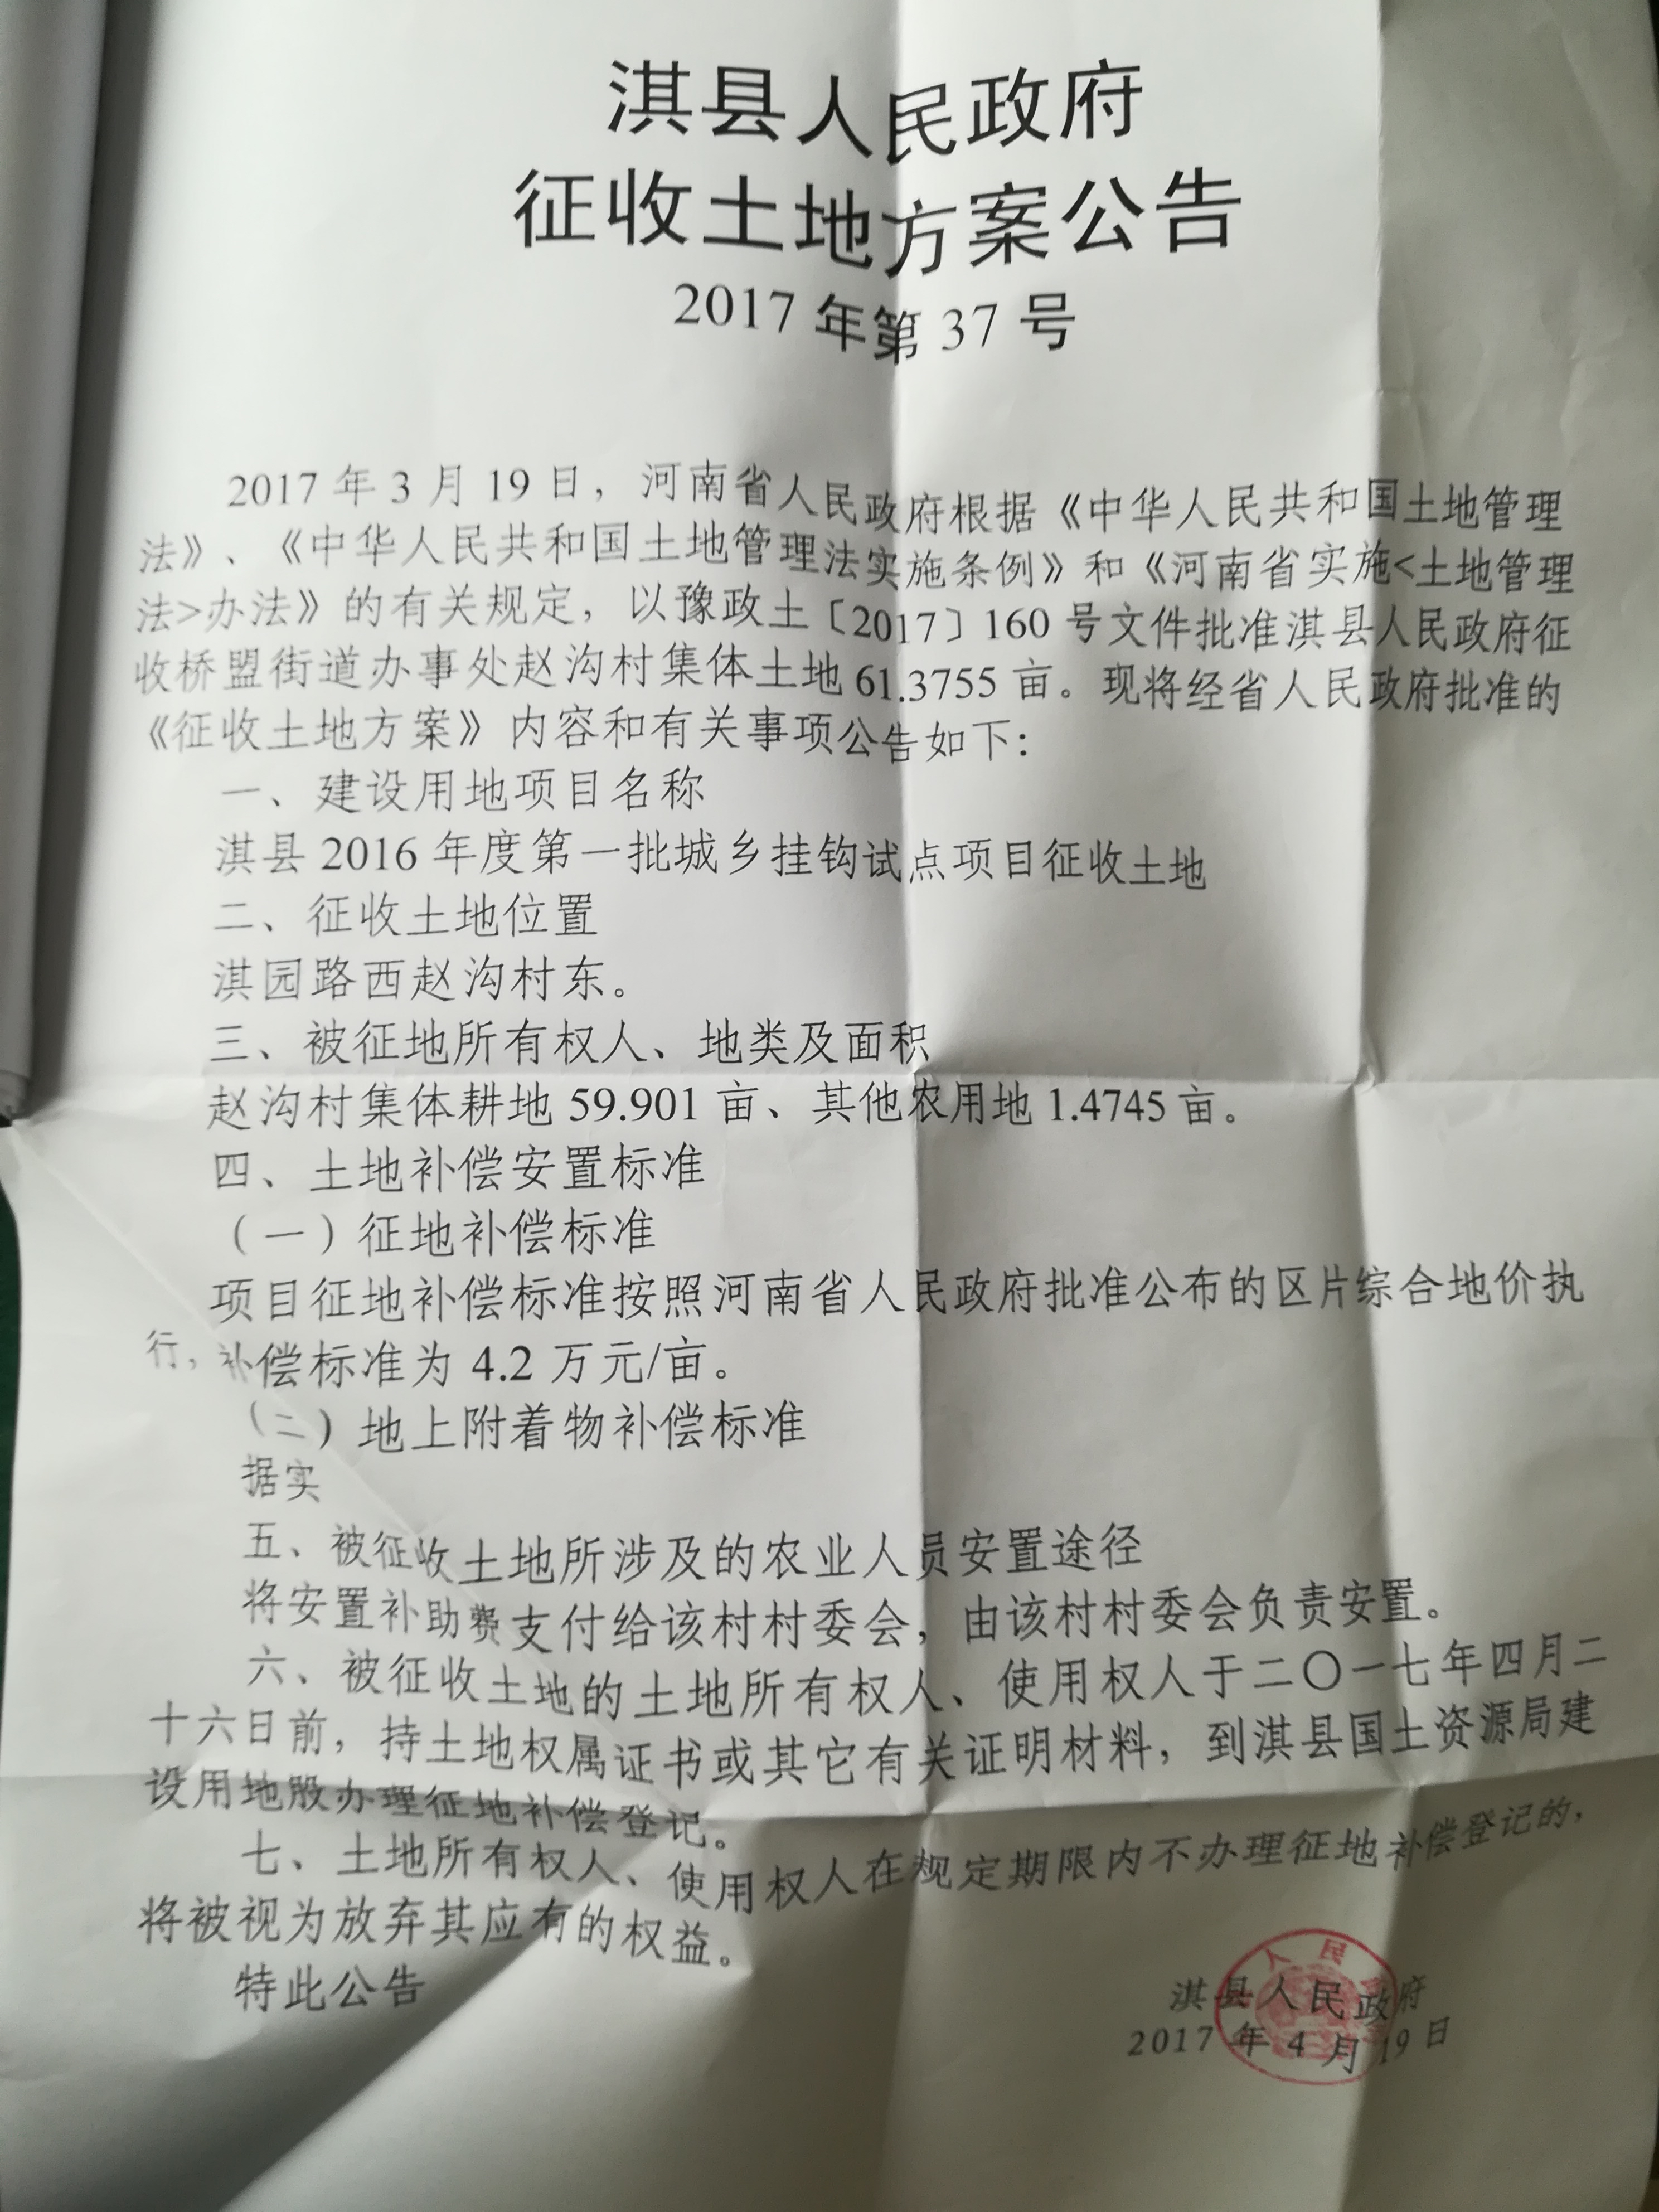 淇县人民政府
征收土地方案公告
2017年第37号
2017年3月19日，河南省人民政府根据《中华人民共和国土地管理
法》、《中华人民共和国土地管理法实施条例》和《河南省实施<土地管理
法>办法》的有关规定，以豫政土〔2017〕160号文件批准淇县人民政府征
收桥盟街道办事处赵沟村集体土地61.3755亩。现将经省人民政府批准的
《征收土地方案》内容和有关事项公告如下：
一、建设用地项目名称
淇县2016年度第一批城乡挂钩试点项目征收土地
二、征收土地位置
淇园路西赵沟村东。
三、被征地所有权人、地类及面积
赵沟村集体耕地59.901亩、其他农用地1.4745亩。
四、土地补偿安置标准
（一）征地补偿标准
项目征地补偿标准按照河南省人民政府批准公布的区片综合地价执
行，补偿标准为4.2万元/亩。
（二）地上附着物补偿标准
据实
五、被征收土地所涉及的农业人员安置途径
将安置补助费支付给该村村委会，由该村村委会负责安置。
六、被征收土地的土地所有权人、使用权人于二〇一七年四月二
十六日前，持土地权属证书或其它有关证明材料，到淇县国土资源局建
设用地股办理征地补偿登记。
七、土地所有权人、使用权人在规定期限内不办理征地补偿登记的，
将被视为放弃其应有的权益。
特此公告
淇县人民政府
2017年4月19日